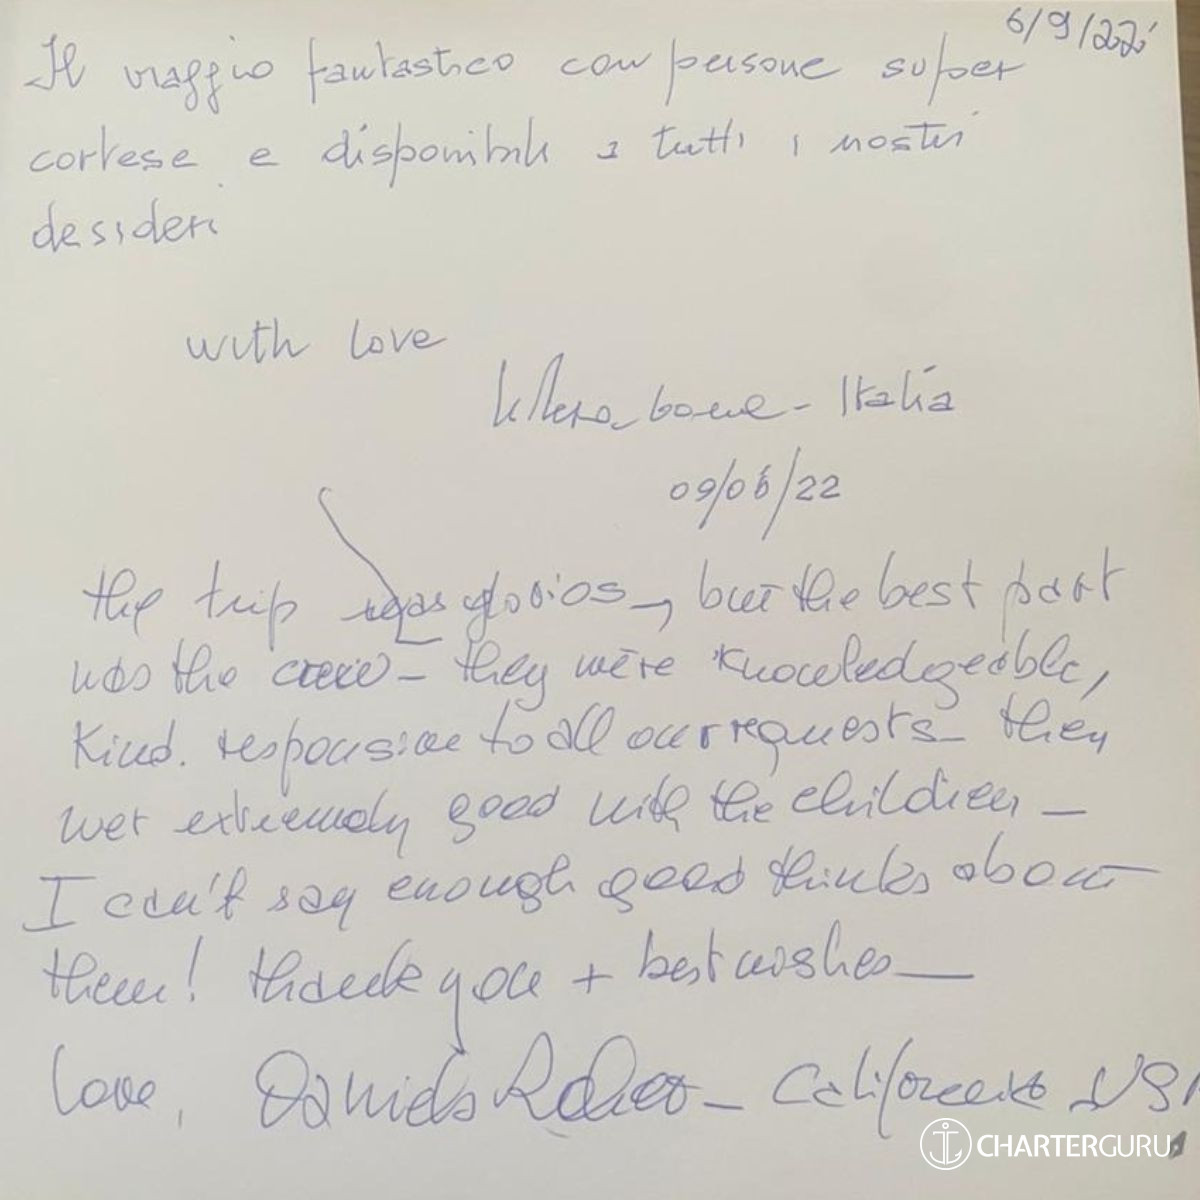 6/9/202
Il viaggio fantastico con persone super
cortese e disponibili a tutti i nostri
desideri
with love
Italia
09/06/22
the trip was glorios, but the best part
was the crew – they were knowledgeable,
kind. responsive to all our requests – they
wer extremely good with the children –
I can't say enough good thinks about
them! thank you + best wishes —
love, Daniela – California USA
CHARTERGURU